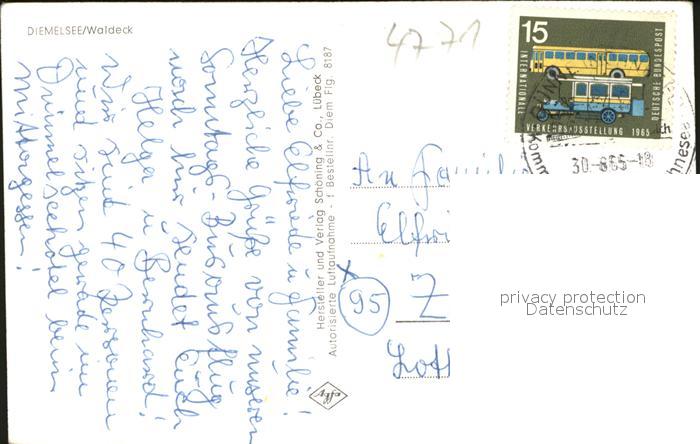 DIEMELSEE/Waldeck
4771
Liebe Elfriede u Familie!
Herzliche Grüße von unserem
Sonntags-Busausflug
nach hier sendet Euch
Helga u Bernhard!
Wir sind 40 Personen
und sitzen gerade im
Diemelseehotel beim
Mittagessen!
Hersteller und Verlag Schöning & Co., Lübeck
Autorisierte Luftaufnahme - f Bestellnr. Diem Flg. 8187
effbe
15
INTERNATIONALE
VERKEHRSAUSSTELLUNG 1965
DEUTSCHE BUNDESPOST
30.-8.65-18
An Familie
Elfri
95
Z
Lott
privacy protection
Datenschutz